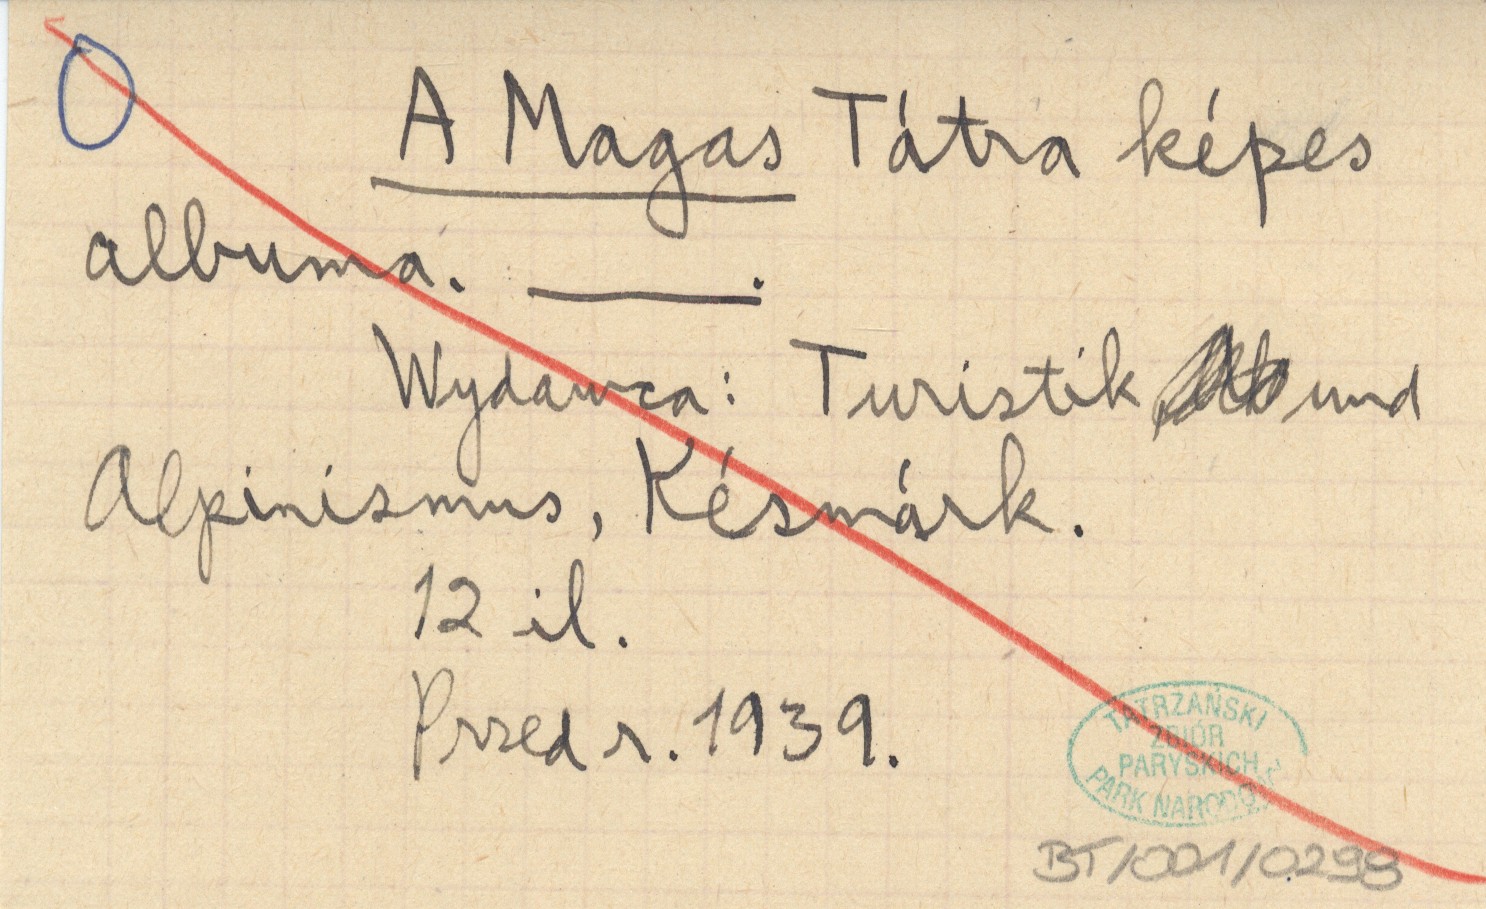 A Magas Tátra képes
albuma. ———.
Wydawca: Turistik und
Alpinizmus, Késmárk.
12 il.
Przed r. 1939.
TATRZAŃSKI
ZBIÓR
PARYSKICH
PARK NARODOWY
BT/001/0298